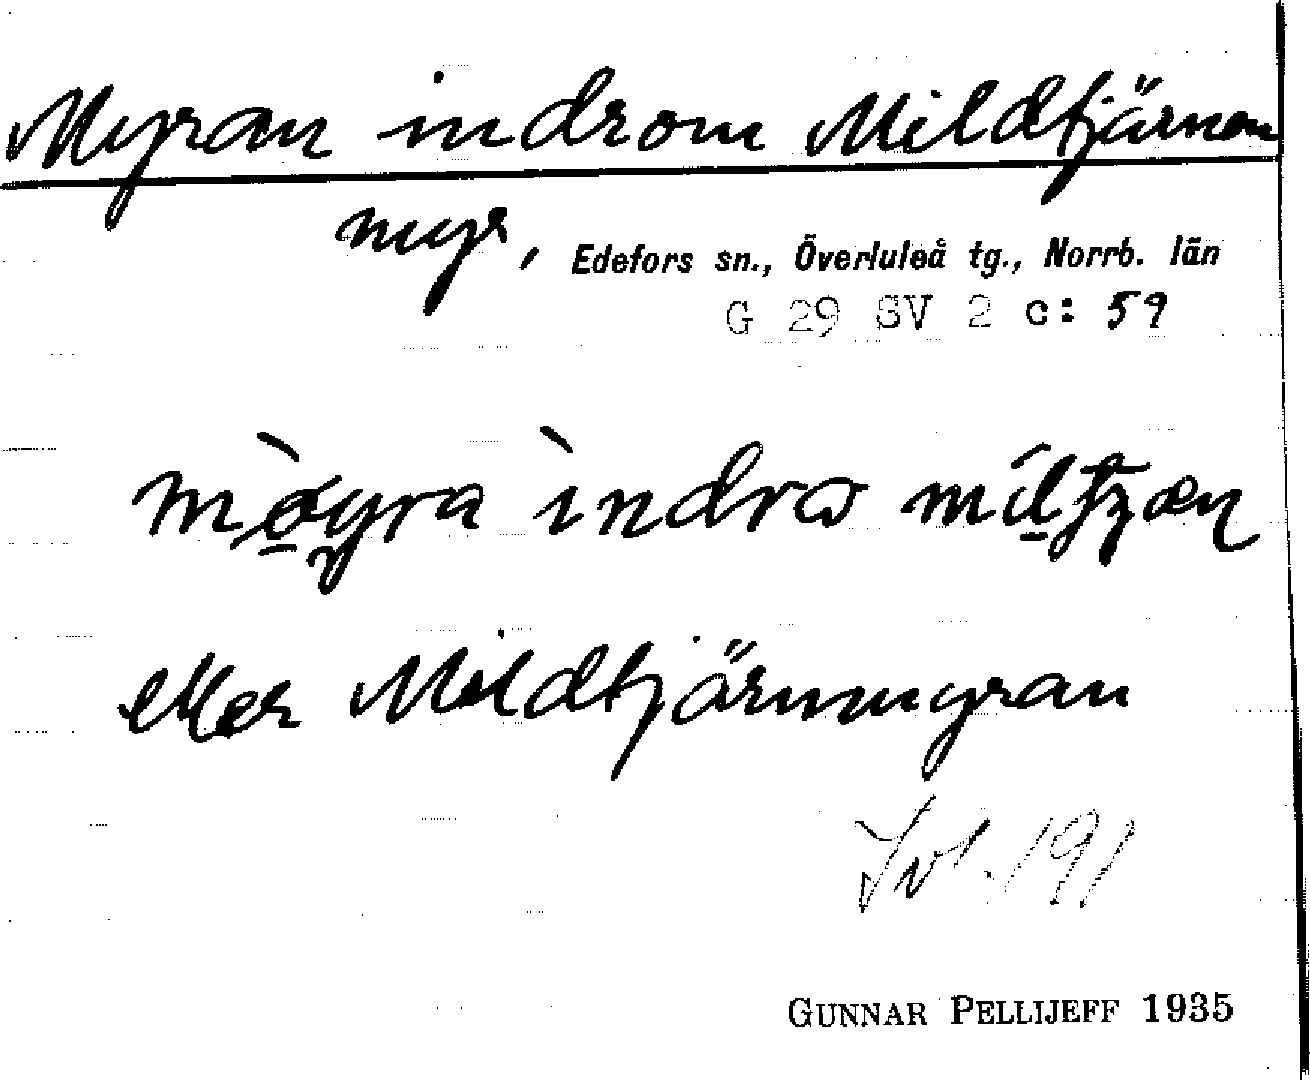 Myran indrom Mildtjärnen
myr, Edefors sn., Överluleå tg., Norrb. län
G 29 SV 2 c: 59
eller Mildtjärnmyran
191
GUNNAR PELLIJEFF 1935